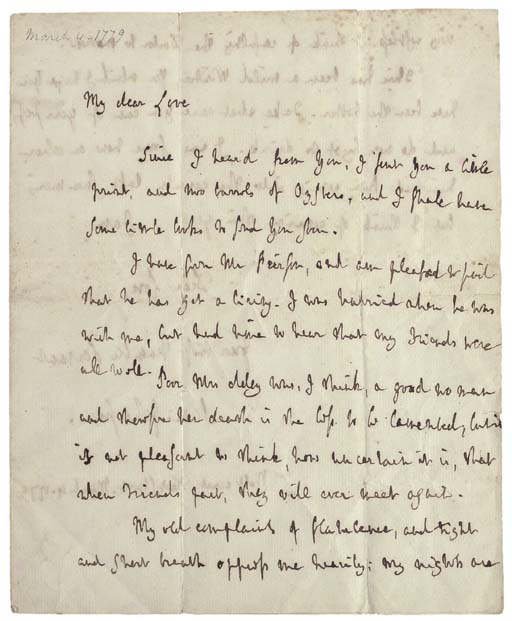 March 4-1779
My dear Love
Since I heard from You, I sent you a little
print, and two barrels of Oysters, and I shall have
some little books to send you soon.
I have seen Mr Peirson, and am pleased to find
that he has got a living. I was hurried when he was
with me, but had time to hear that my Friends were
all well.
Poor Mrs Adey was, I think, a good woman
and therefore her death is the less to be lamented, but it
is not pleasant to think, how uncertain it is, that
when Friends part, they will ever meet again.
My old complaint of flatulence, and tight
and short breath oppress me heavily; my nights are